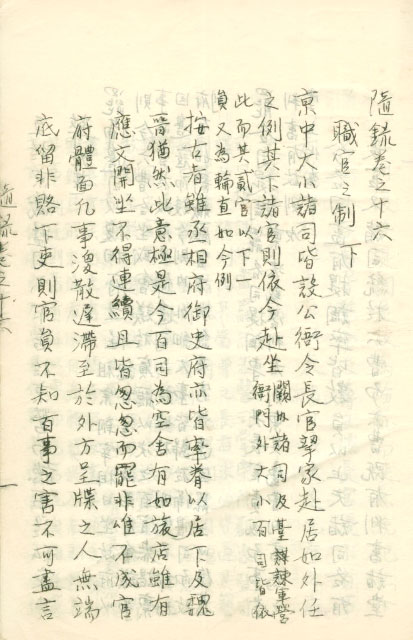 隨錄卷之十六
職官之制 下
京中大小諸司皆設公衙令長官挈家赴居如外任
之例其下諸官則依今赴坐 闕內諸司及臺諫軍營
衙門外大小百司皆依
此而其貳官以下一
員又為輪直如今例
按古者雖丞相府御史府亦皆率眷以居下及魏
晉猶然此意極是今百司為空舍有如旅店雖有
應文開坐不得連續且皆忽忽而罷非惟不成官
府體面凡事渙散遲滯至於外方呈牒之人無端
底留非賂下吏則官員不知百事之害不可盡言
隨錄卷之十六
一